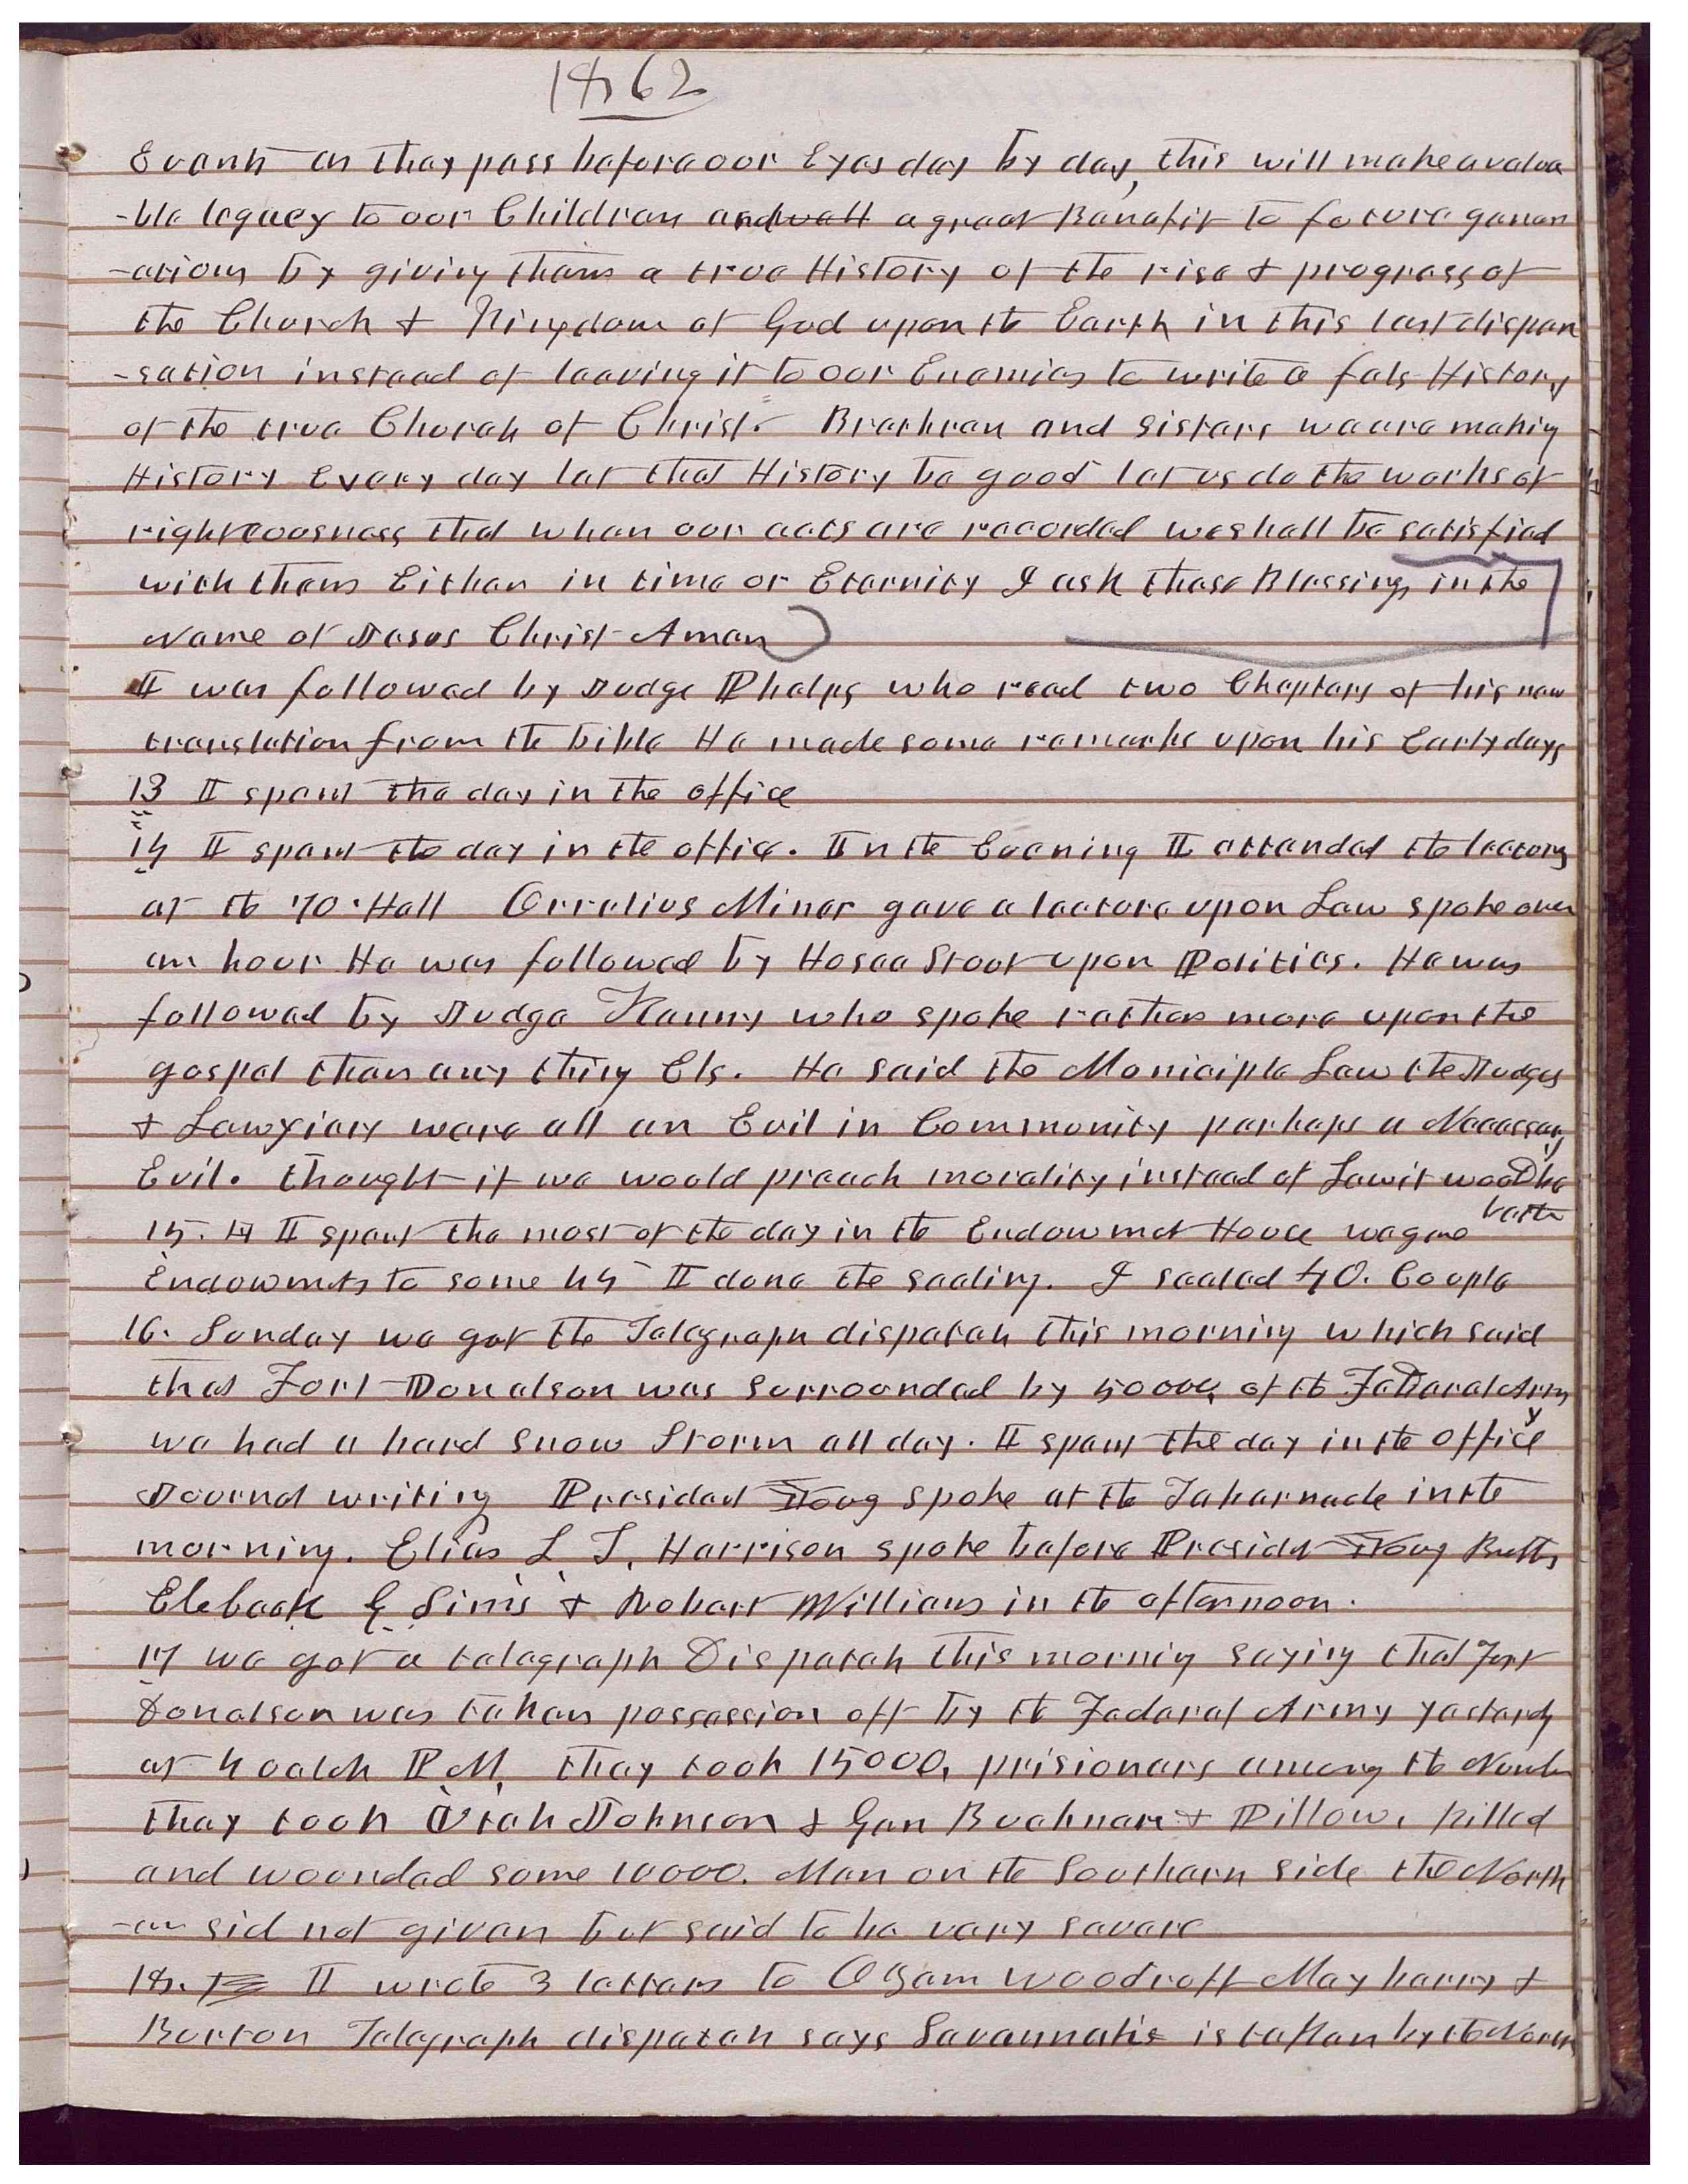 1862
Events as they pass before our Eyes day by day, this will make a valua
-ble legacy to our Children and a great Benefit to future gener
-ations by giving them a true History of the rise & progress of
the Church & Kingdom of God upon the Earth in this last dispen
-sation instead of leaving it to our Enemies to write a fals History
of the true Church of Christ. Brethren and Sisters we are making
History Every day let that History be good let us do the works of
righteousness that when our acts are recorded we shall be satisfied
with them Either in time or Eternity I ask these Blessings in the
Name of Jesus Christ Amen
I was followed by Judge Phelps who read two Chapters of his new
translation from the bible He made some remarks upon his Early days
13 I spent the day in the office
14 I spent the day in the office. In the Evening I attended the lectory
at the 70. Hall Orrelius Miner gave a lecture upon Law spoke over
an hour He was followed by Hosea Stout upon Politics. He was
followed by Judge Kenny who spoke rather more upon the
gospel than any thing Els. He said the Municiple Law the Judges
& Lawyiers were all an Evil in Community perhaps a Necessary
Evil. thought if we would preach morality instead of Law it would be
better
15. I spent the most of the day in the Endowmet House we gave
Endowmets to some 45 I done the sealing. I sealed 40. Couple
16. Sunday we got the Telegraph dispatch this morning which said
that Fort Donelson was Surrounded by 50000, of the Federal Army
we had a hard Snow Storm all day. I spent the day in the office
Journal writing President Young spoke at the Tabernacle in the
morning. Elias L T, Harrison spoke before President Young
G Sims & Robert Williams in the afternoon.
17 we got a telegraph Dispatch this morning saying that Fort
Donelson was taken possession off by the Federal Army yesterdy
at 4 oclok PM, they took 15000, prisioners among the Number
they took Utah Johnson & Gen Buckner & Pillow, killed
and wounded some 10000. Men on the Southern Side the North
-ern sid not given but said to be very severe
18. I wrote 3 letters to Ozem Woodruff May harry &
Burton Telegraph dispatch says Savannah is taken by the North